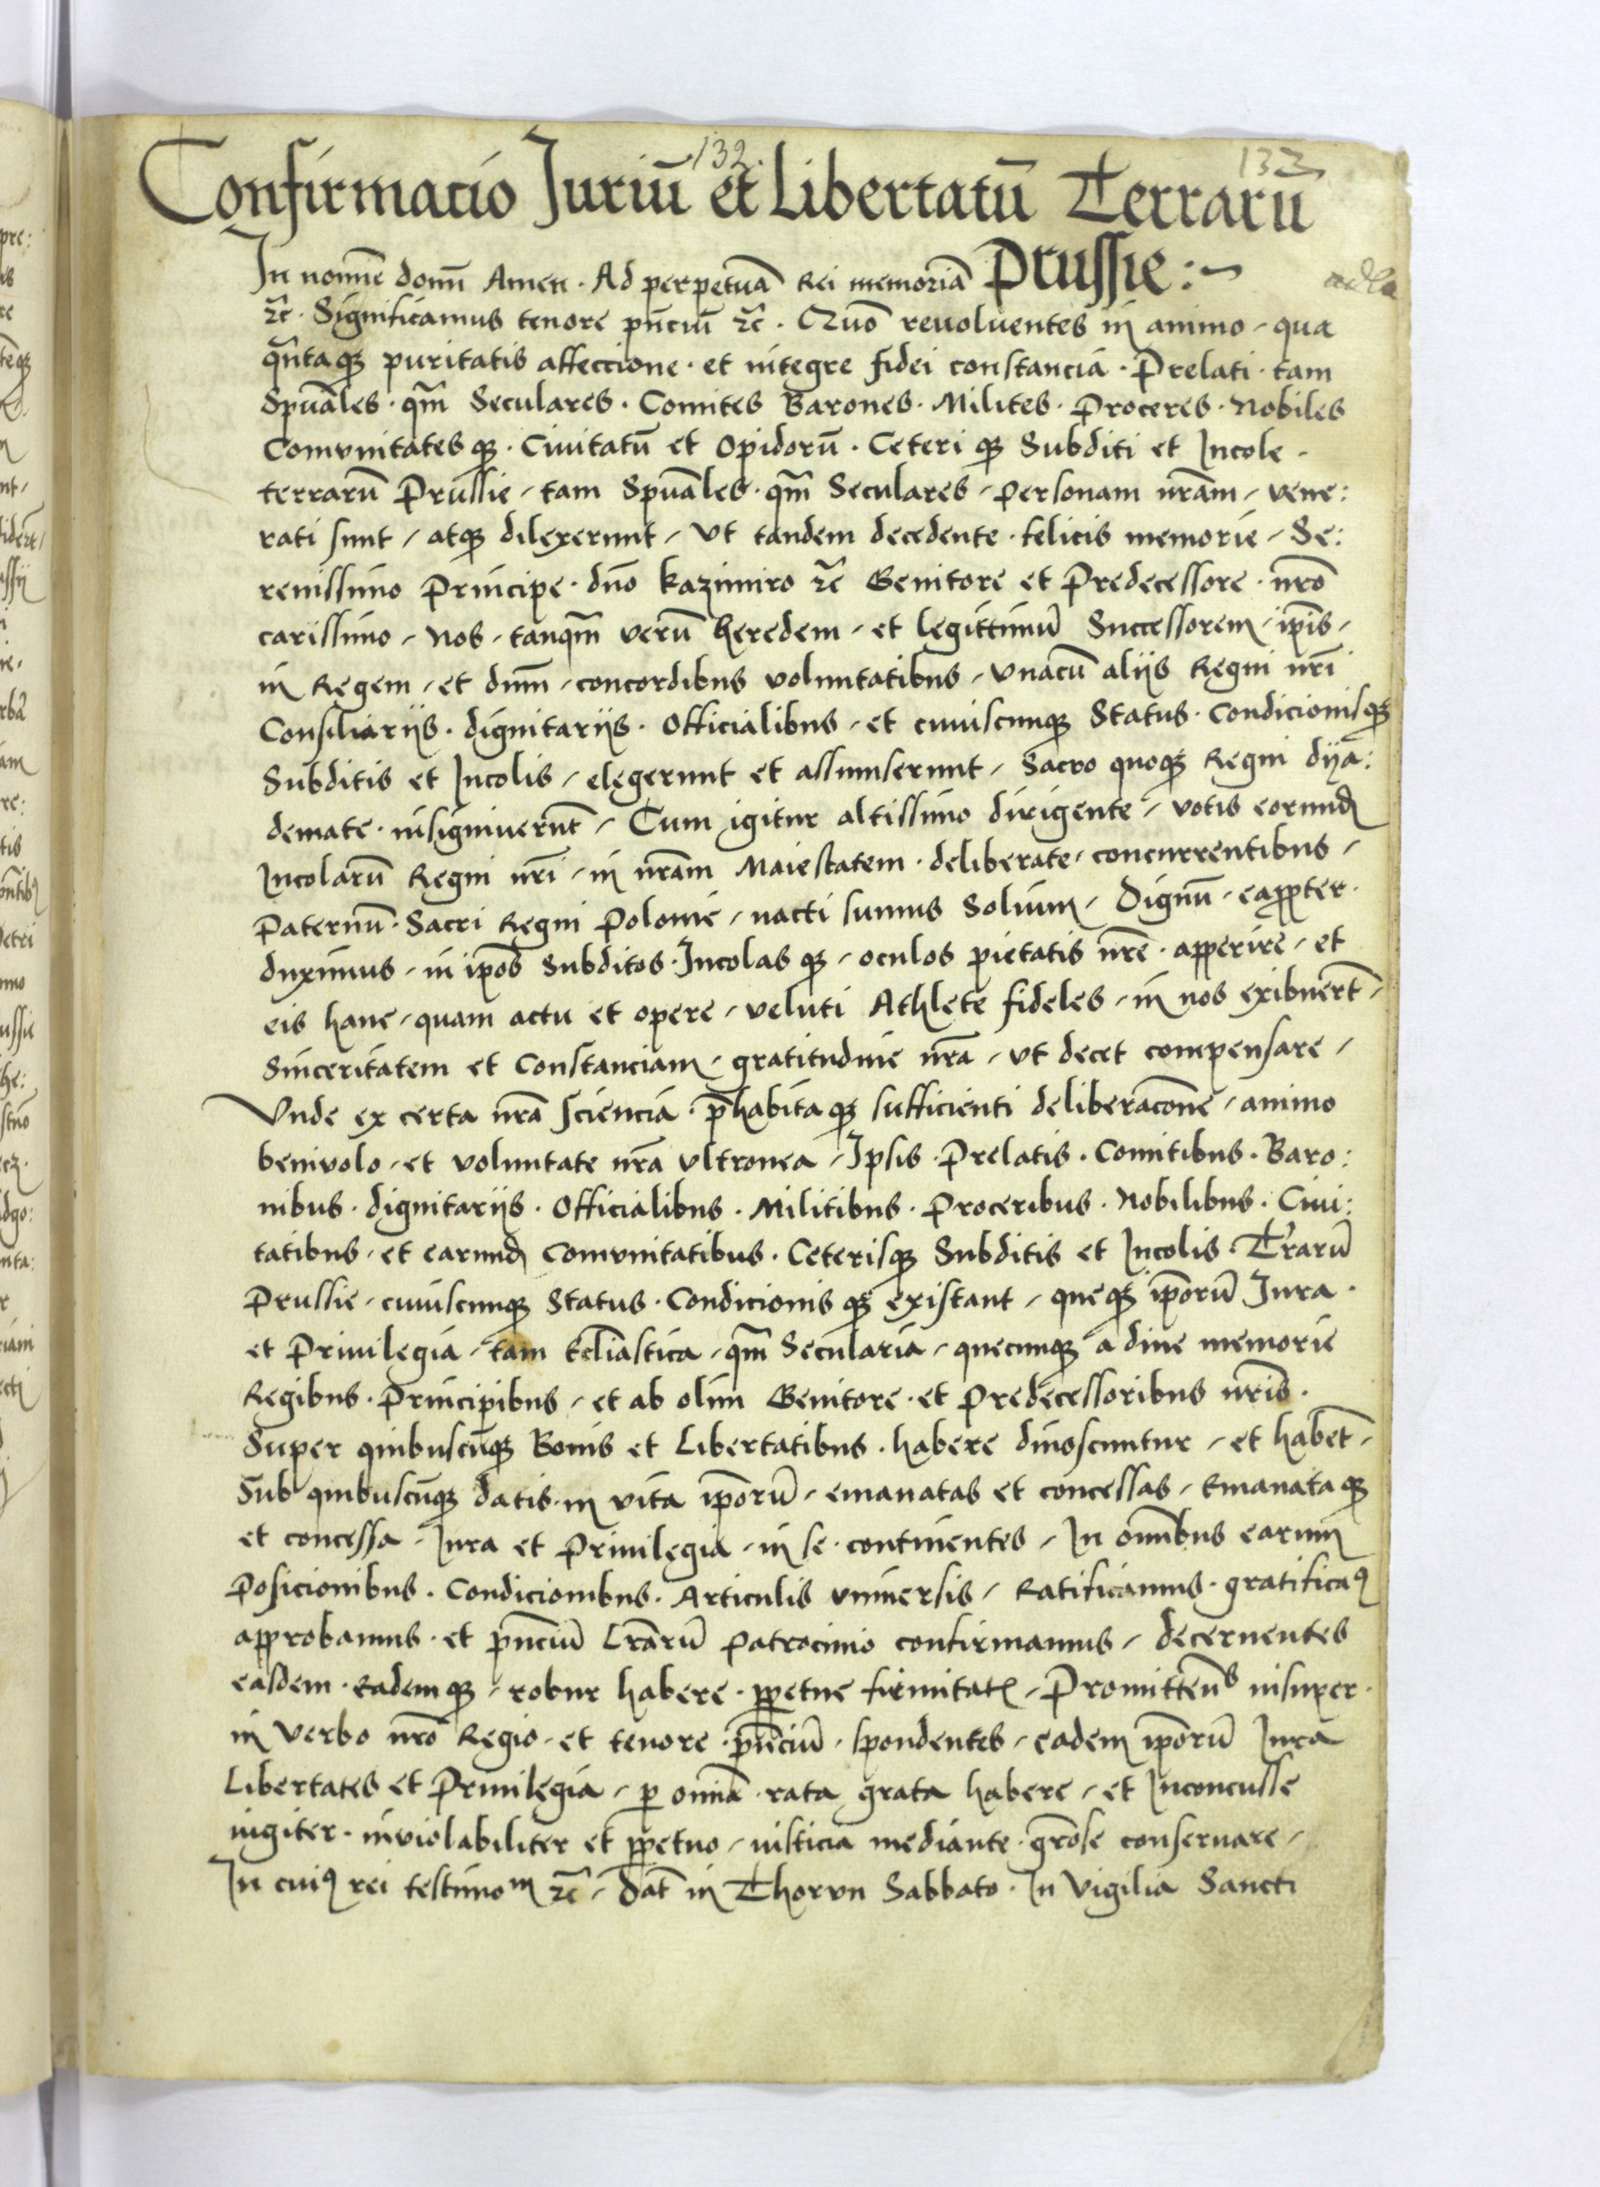 132.
132
Confirmacio Juriū et Libertatū Terrarū
Prussie :~
In nomīe domī Amen · Ad perpetuā Rei memoriā
rc̄ · Significamus tenore pn̄ciū rc̄ · Quō reuoluentes in animo / qua
qn̄taqꝫ puritatis affeccione · et integre fidei constancia · Prelati · tam
Spūales · qm̄ Seculares · Comites Barones · Milites · Proceres · Nobiles
Comvnitatesqꝫ · Ciuitatū et Opidorū · Ceteriqꝫ Subditi et Incole ·
terrarū Prussie / tam Spūales · qm̄ Seculares / personam nr̄am / vene:
rati sunt / atqꝫ dilexerunt / Vt tandem decedente · felicis memorie / Se:
renissimo Principe · dn̄o kazimiro rc̄ Genitore et Predecessore · nr̄o
carissimo / Nos · tanqm̄ verū heredem / et legittimū Successorem / ip̄is /
in Regem / et dn̄m / concordibus voluntatibus / vnacū alijs Regni nr̄i
Consiliarijs · dignitarijs · Officialibus / et cuiuscunqꝫ Status · Condicionisqꝫ
Subditis et Incolis / elegerunt et assumserunt / Sacro quoqꝫ Regni dya:
demate · insigniuerūt / Cum igitur altissimo dirigente / votis eorundꝫ
Incolarū Regni nr̄i / in nr̄am Maiestatem · deliberate · concurrentibus /
Paternū · Sacri Regni Polonie / nacti sumus Solium / Dignū · eapp̄ter ·
duximus / in ip̄os Subditos · Incolasqꝫ / oculos pietatis nr̄e · apperire / et
eis hanc / quam actu et opere / veluti Athlete fideles / in nos exibuerūt /
Sinceritatem et Constanciam / gratitudine nr̄a / vt decet compensare /
Vnde ex certa nr̄a Sciencia · p̄habitaqꝫ sufficienti deliberacōne / animo
beniuolo / et voluntate nr̄a vltronea / Ipsis · Prelatis · Comitibus · Baro:
nibus · dignitarijs · Officialibus · Militibus · Proceribus · Nobilibus · Ciui:
tatibus · et earundꝫ Comvnitatibus · Ceterisqꝫ Subditis et Incolis · Tr̄arū
Prussie / cuiuscunqꝫ Status · Condicionisqꝫ existant / queqꝫ ip̄orū Iura ·
et Priuilegia / tam Ecl̄iastica / qm̄ Secularia / quecunqꝫ a diue memorie
Regibus · Principibus / et ab olim Genitore · et Predecessoribus nr̄is ·
Super quibuscūqꝫ Bonis et Libertatibus · habere dinoscuntur / et habēt /
Sub quibuscūqꝫ datis · in vita ip̄orū / emanatas et concessas / Emanataqꝫ
et concessa · Iura et Priuilegia / in se · continentes / In om̄ibus earum
Posicionibus · Condicionibus · Articulis vniuersis / Ratificamus · gratificaꝰ
approbamus · et pn̄ciū Lr̄arū Patrocinio confirmamus / decernentes
easdem · Eademqꝫ / robur habere · ꝑpetue firmitatꝭ / Promittenˢ insuper ·
in verbo nr̄o Regio · et tenore · pn̄ciū · spondentes / eadem ip̄orū Iura
Libertates et Priuilegia / ꝑ om̄ia · rata grata habere / et Inconcusse
iugiter · inviolabiliter et ꝑpetuo / iusticia mediante · gr̄ose conseruare /
In cuiꝰ rei testimoᵐ rc̄ / Dat̄ in Thorvn Sabbato · In Vigilia Sancti